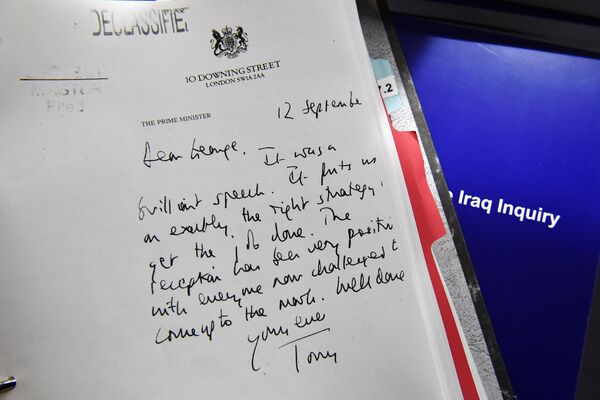 DECLASSIFIED
10 DOWNING STREET
LONDON SW1A 2AA
THE PRIME MINISTER
12 September
Dear George. It was a
brilliant speech. It puts us
on exactly the right strategy to
get the job done. The
reception has been very positive
with everyone now challenged to
come up to the mark. Well done
Yours ever
Tony
7.2
Iraq Inquiry